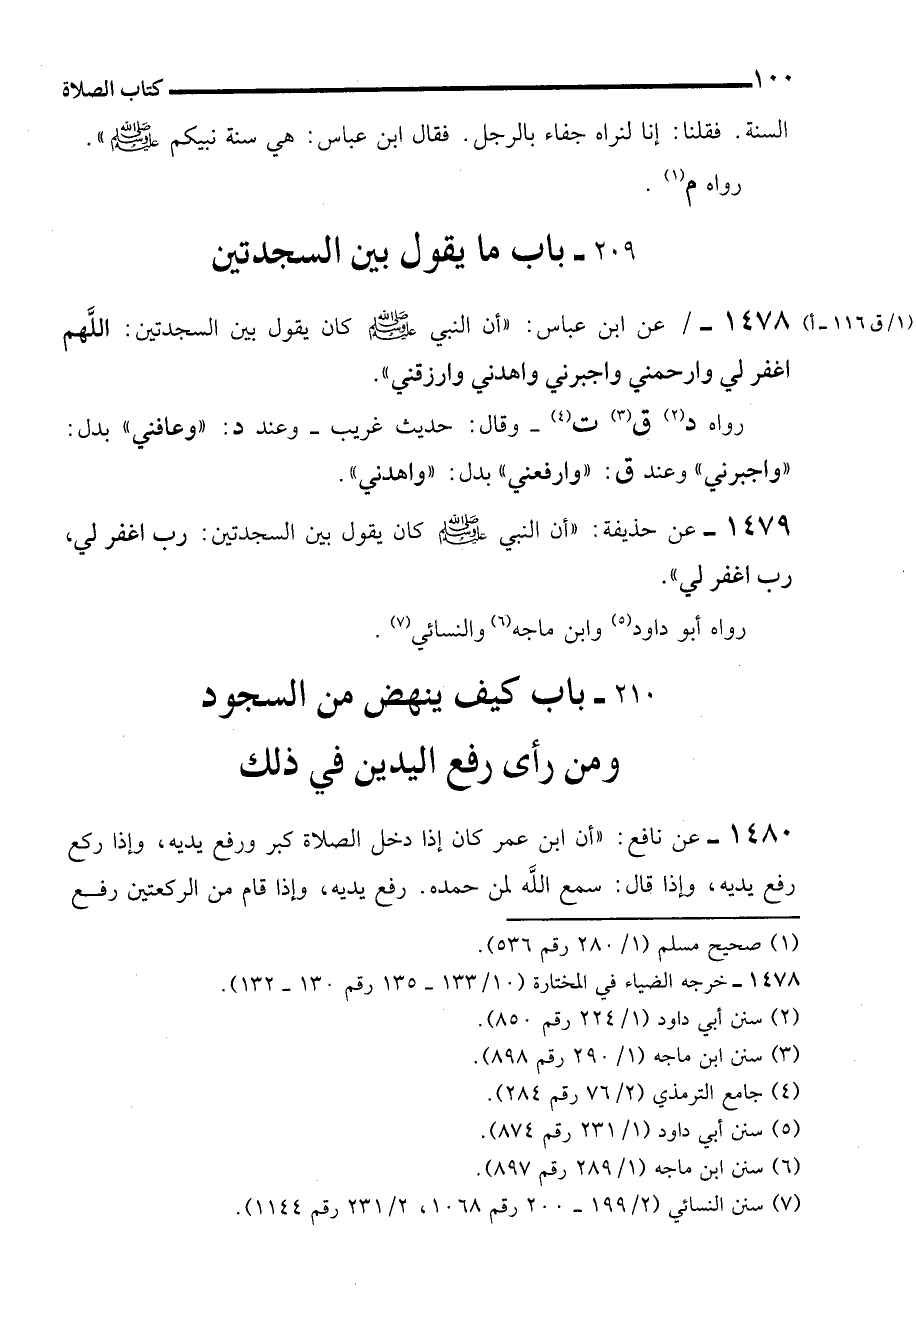 ١٠٠ كتاب الصلاة
السنة. فقلنا: إنا لنراه جفاء بالرجل. فقال ابن عباس: هي سنة نبيكم ﷺ».
رواه م(١).
٢٠٩ ـ باب ما يقول بين السجدتين
(١/ق١١٦ـأ) ١٤٧٨ ـ / عن ابن عباس: «أن النبي ﷺ كان يقول بين السجدتين: اللَّهم
اغفر لي وارحمني واجبرني واهدني وارزقني».
رواه د(٢) ق(٣) ت(٤) ـ وقال: حديث غريب ـ وعند د: «وعافني» بدل:
«واجبرني» وعند ق: «وارفعني» بدل: «واهدني».
١٤٧٩ ـ عن حذيفة: «أن النبي ﷺ كان يقول بين السجدتين: رب اغفر لي،
رب اغفر لي».
رواه أبو داود(٥) وابن ماجه(٦) والنسائي(٧).
٢١٠ ـ باب كيف ينهض من السجود
ومن رأى رفع اليدين في ذلك
١٤٨٠ ـ عن نافع: «أن ابن عمر كان إذا دخل الصلاة كبر ورفع يديه، وإذا ركع
رفع يديه، وإذا قال: سمع اللَّه لمن حمده. رفع يديه، وإذا قام من الركعتين رفـع
(١) صحيح مسلم (١/ ٢٨٠ رقم ٥٣٦).
١٤٧٨ ـ خرجه الضياء في المختارة (١٠/ ١٣٣ ـ ١٣٥ رقم ١٣٠ ـ ١٣٢).
(٢) سنن أبي داود (١/ ٢٢٤ رقم ٨٥٠).
(٣) سنن ابن ماجه (١/ ٢٩٠ رقم ٨٩٨).
(٤) جامع الترمذي (٢/ ٧٦ رقم ٢٨٤).
(٥) سنن أبي داود (١/ ٢٣١ رقم ٨٧٤).
(٦) سنن ابن ماجه (١/ ٢٨٩ رقم ٨٩٧).
(٧) سنن النسائي (٢/ ١٩٩ ـ ٢٠٠ رقم ١٠٦٨، ٢/ ٢٣١ رقم ١١٤٤).